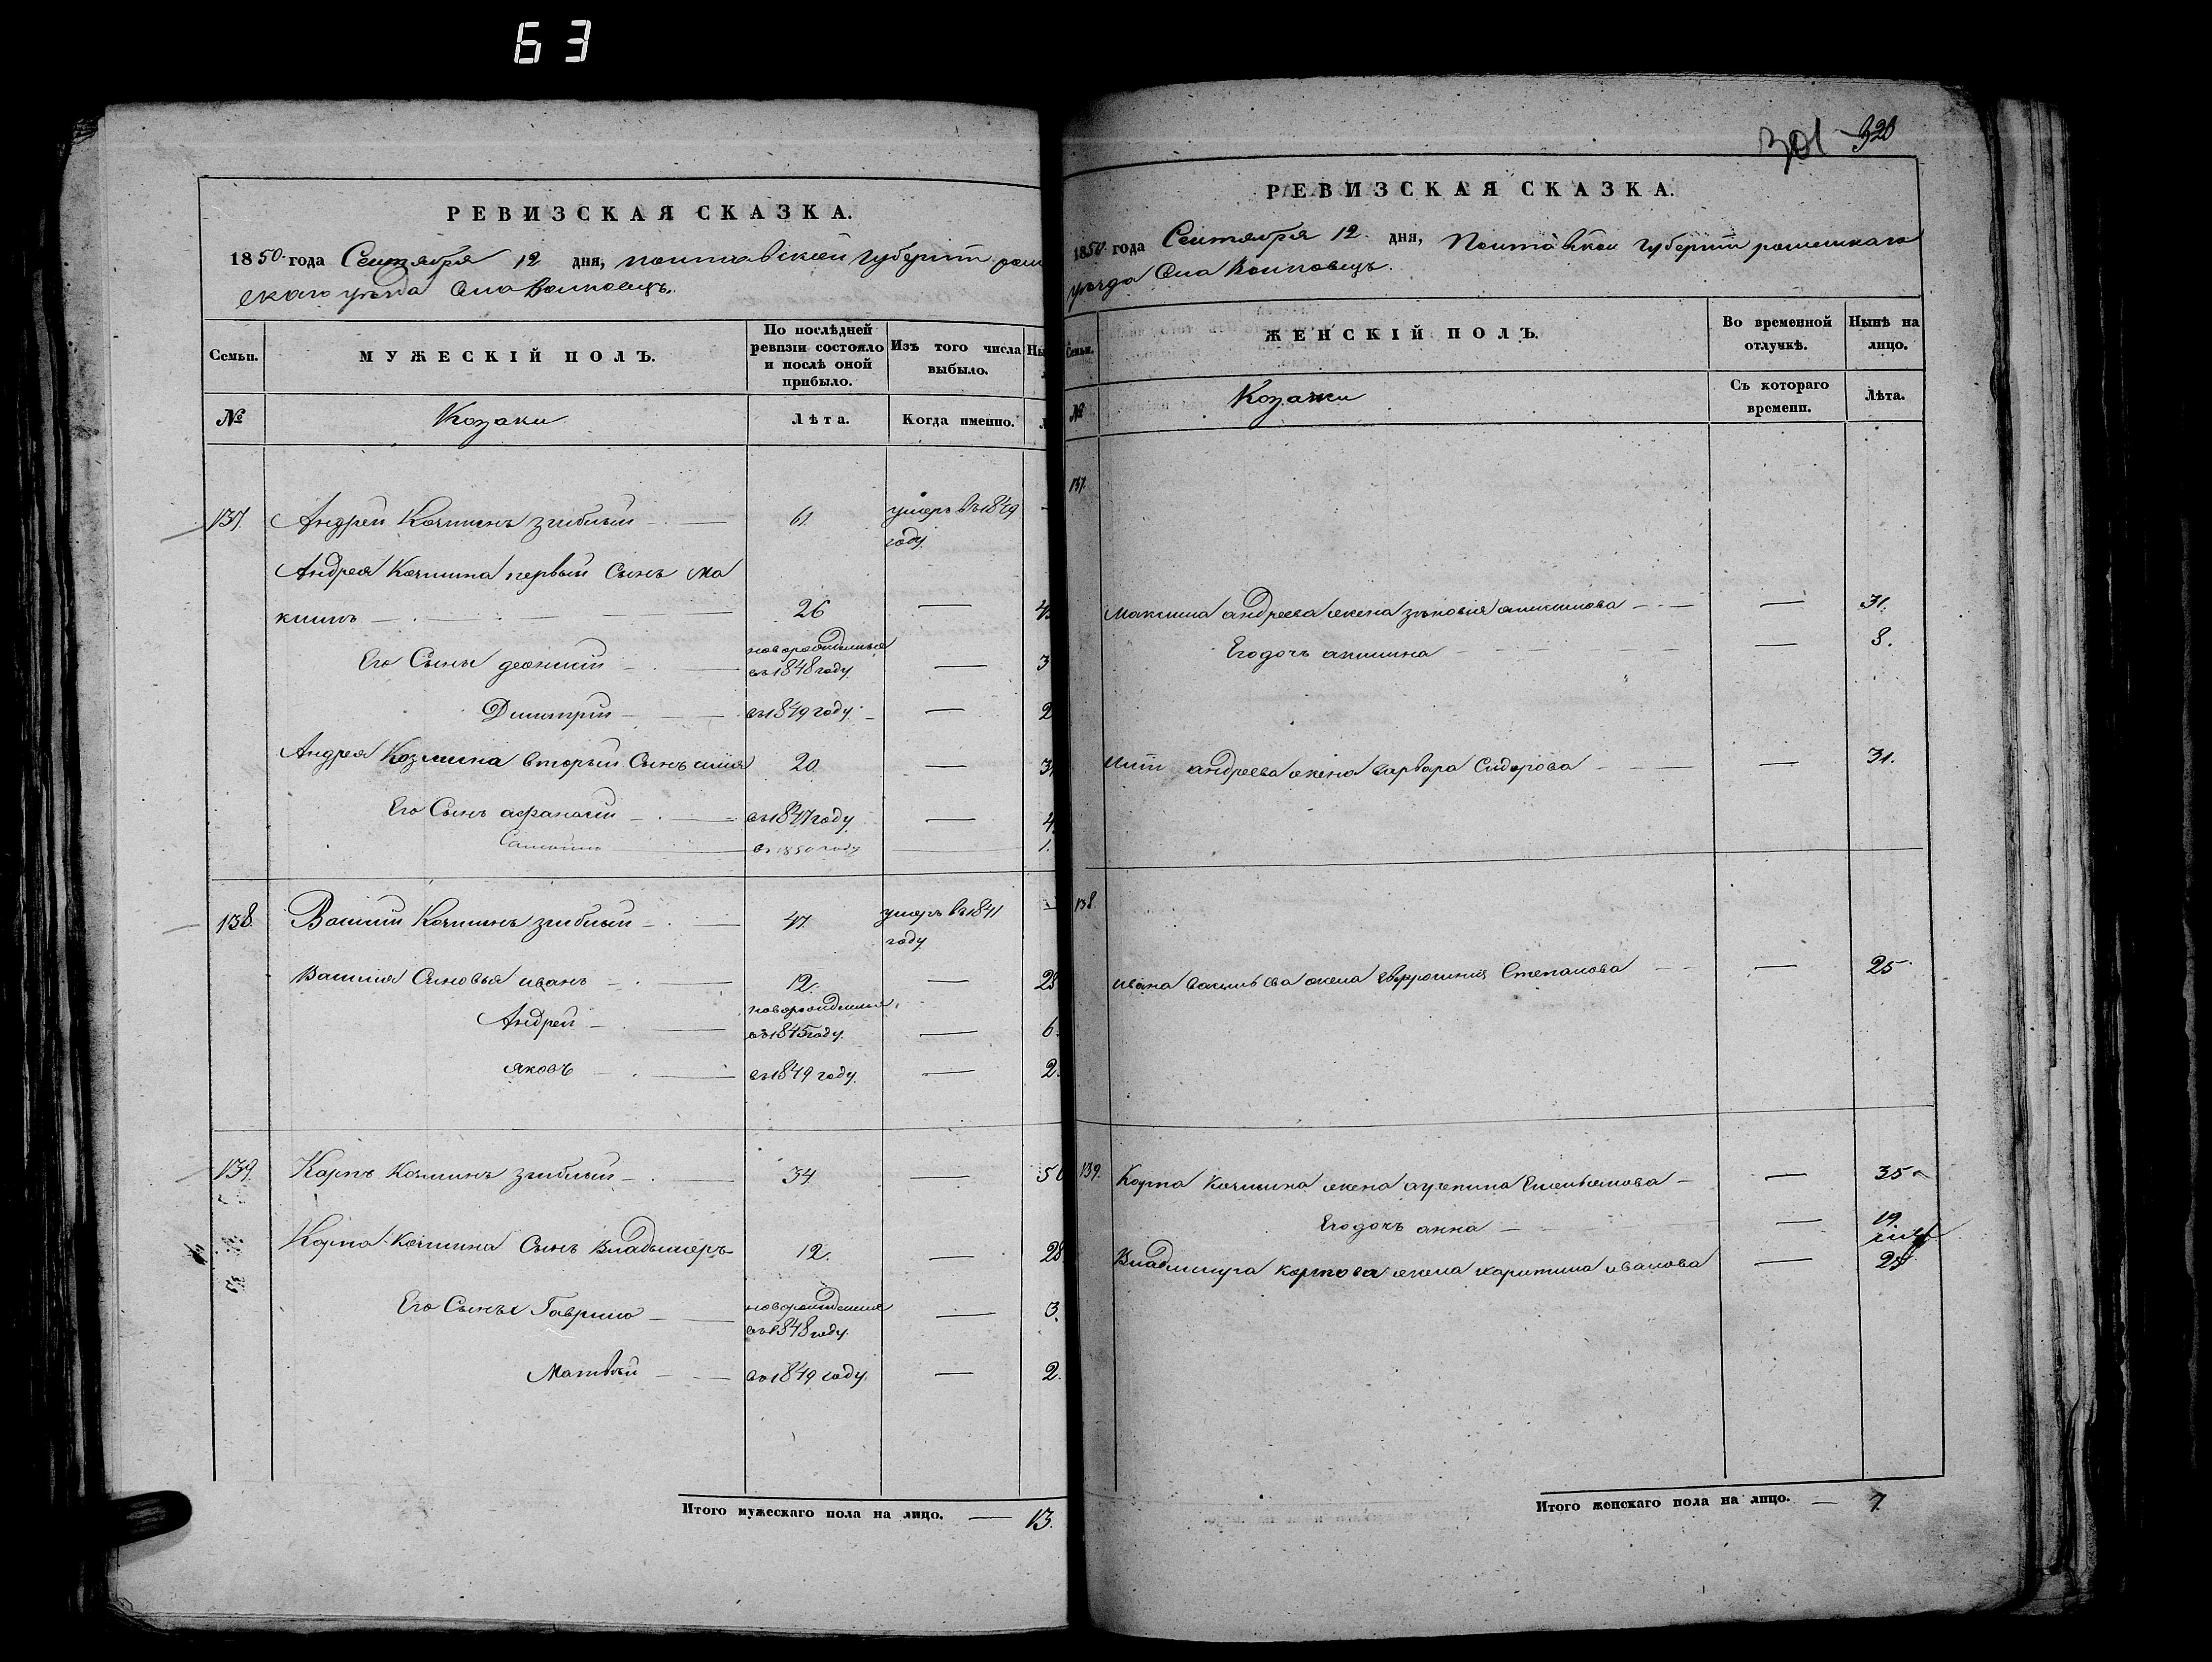 63
РЕВИЗСКАЯ СКАЗКА.
1850 года Сентября 12 дня, полтавской губернiи ром
скаго уезда Села Волковецъ.
Семьи.
МУЖЕСКІЙ ПОЛЪ.
По послѣдней ревизіи состояло и послѣ оной прибыло.
Изъ того числа выбыло.
Ны
№
Козаки
Лѣта.
Когда именно.
137. Андрей Козминъ згиблый 61. умеръ въ 1849
году.
Андрея Козмина первый Сынъ Ма
ксимъ 26
Его Сыны леонтiй новорожденные въ 1848 году. 3
Димитрiй въ 1849 году. 2
Андрея Козмина Вторый Сынъ илiя 20 3
Его Сынъ афанасiй въ 1847 году. 4
въ 1850 году 1.
138. Василiй Козминъ згиблый 47. умеръ въ 1841
году
Василiя Синовья иванъ 12. 28
Андрей новорожденные въ 1845 году. 6.
яковъ въ 1849 году. 2.
139. Карпъ Козминъ згиблый 34 5
Карпа Козмина Сынъ Владымеръ 12. 28
Его Сыны Гаврило новорожденные въ 1848 году. 3.
Матвѣй въ 1849 году. 2.
Итого мужескаго пола на лицо. 13.
301 320
РЕВИЗСКАЯ СКАЗКА.
1850 года Сентября 12 дня, Полтавской губернiи роменскаго
уезда Села Волковецъ.
Семьи.
ЖЕНСКІЙ ПОЛЪ.
Во временной отлучкѣ.
Нынѣ на лицо.
№
Козачки
Съ котораго времени.
Лѣта.
137.
Максима андреева жена зѣновiя 31.
Его дочь акилина 8.
Илiи андреева жена варвара Сидорова 31.
138
ивана васильева жена Степанова 25
139. Карпа Козмина жена агрепина Емельянова 35
Его дочь анна 19.
Владимира карпова жена харитина иванова 25
Итого женскаго пола на лицо. 7.